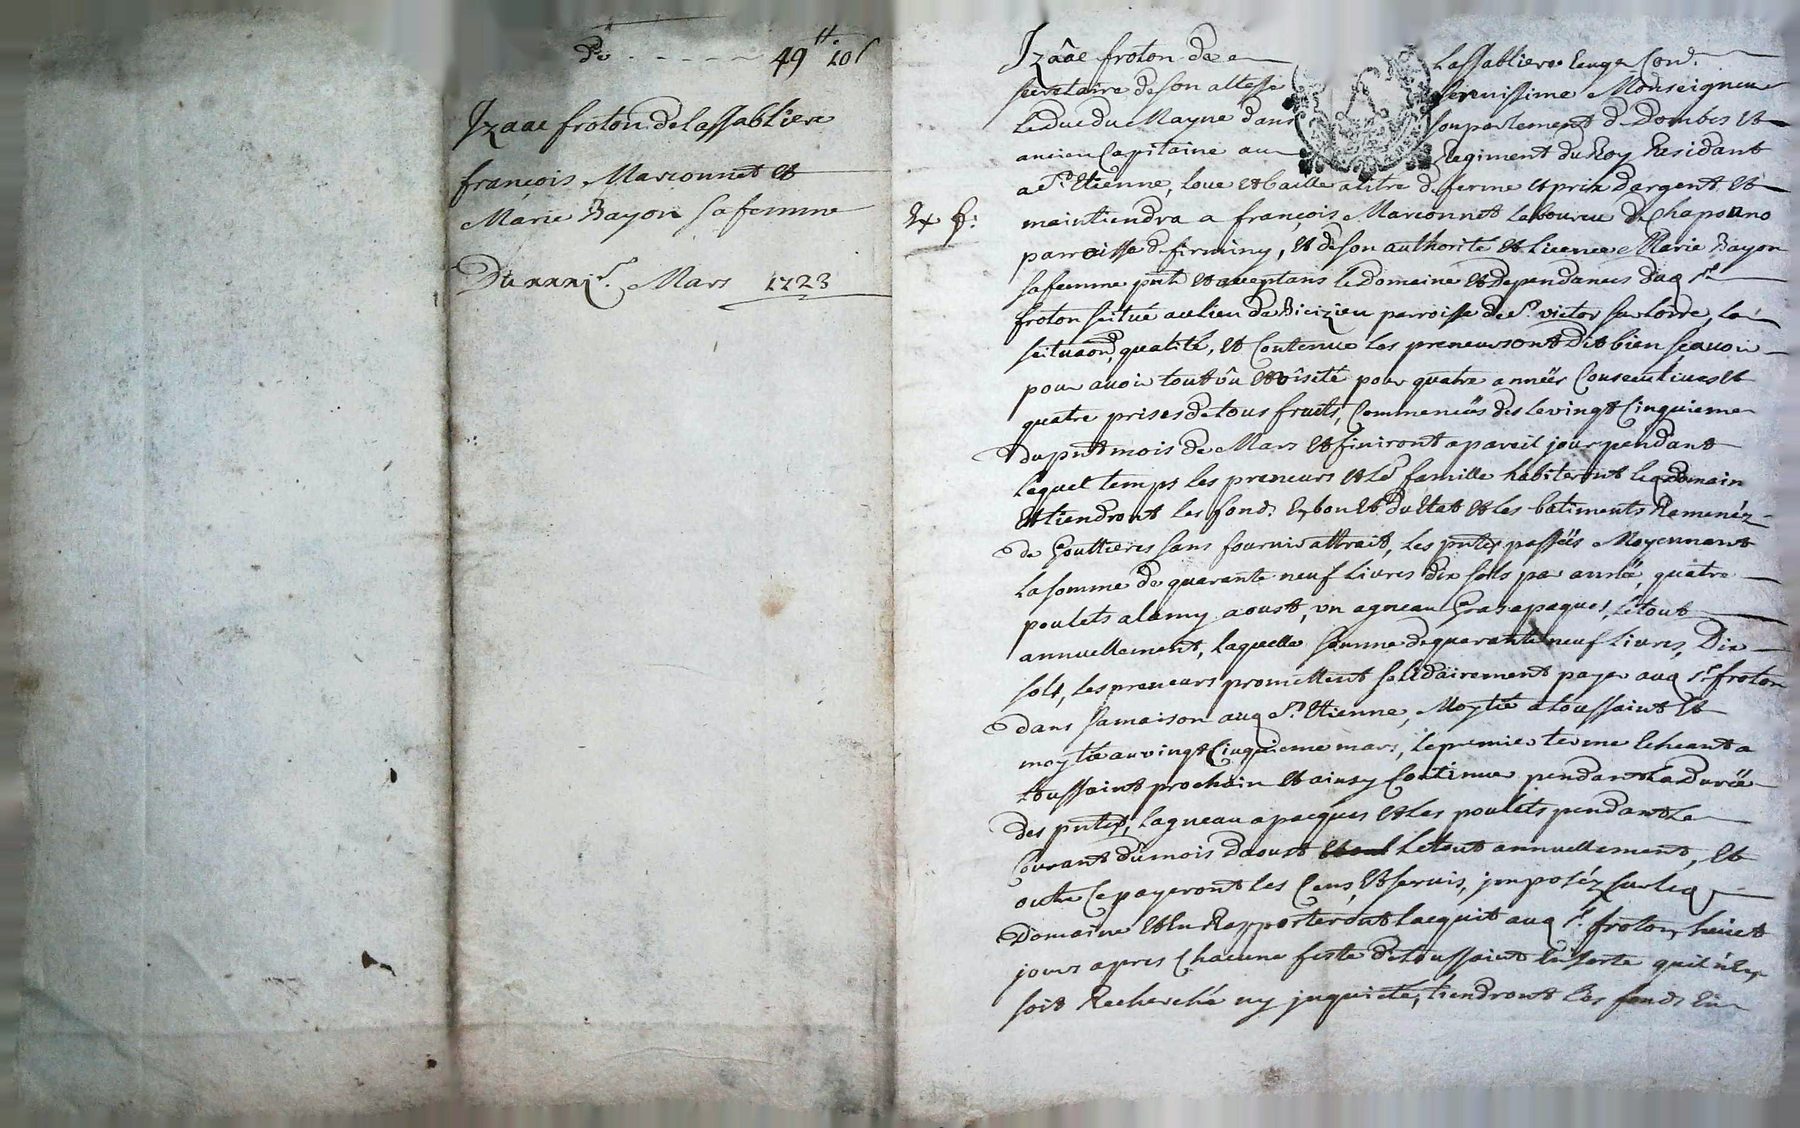 De ----- 49 ₶ 10 s
Izaac froton de lassabliere
françois Marconnet et
Marie Bayon sa femme
Du xxxi.e Mars 1723
Izâac froton de lassabliere Con.er
secretaire de son altesse serenissime Monseigneur
le Duc du Mayne dans son parlement de Dombes et
ancien Capitaine au Regiment du Roy Residant
a St. Etienne, loue et baille a titre de ferme et prix dargent et
maintiendra a françois Marconnet laboureur de Chaponno
parroisse de firminy, et de son authorité et licence Marie Bayon
sa femme pnte et acceptans le Domaine et dependances dud. Sr
froton scitué au lieu de Bicizieu parroisse de St. victor sur loire, la
scituaon, qualité, et Contenue les preneurs ont dit bien scavoir
pour avoir tout vû et visité pour quatre années Consecutives et
quatre prises de tous fruits, Commencées des le vingt Cinquieme
du pnt mois de Mars et finiront a pareil jour pendant
lequel temps les preneurs et leur famille habiteront led. domaine
et tiendront les fonds En bon et du Etat et les batiments Ramenéz
de Gouttieres sans fournir attrait, les pntes passées Moyennant
la somme de quarante neuf livres dix sols par année, quatre
poulets a lamy aoust, un agneau Gras a paques, le tout
annuellement, laquelle somme de quarante neuf livres, Dix
sols, les preneurs promettent solidairement payer aud. Sr. froton
dans sa maison aud. St. Etienne, Moytié a toussaint et
moytié au vingt Cinquieme mars, le premier terme Echeant a
toussaint prochain et ainsy Continuer pendant la Durée
des pntes, lagneau a pacques et les poulets pendant le
Courant du mois Daoust le tout annuellement, et
outre Ce payeront les Cens et servis, jmposéz sur led.
Domaine et En Rapporteront lacquit aud. Sr. froton, huict
jours apres Chacune feste de toussaint En sorte quil n'En
soit Recherché ny jnquieté, tiendront les fonds En